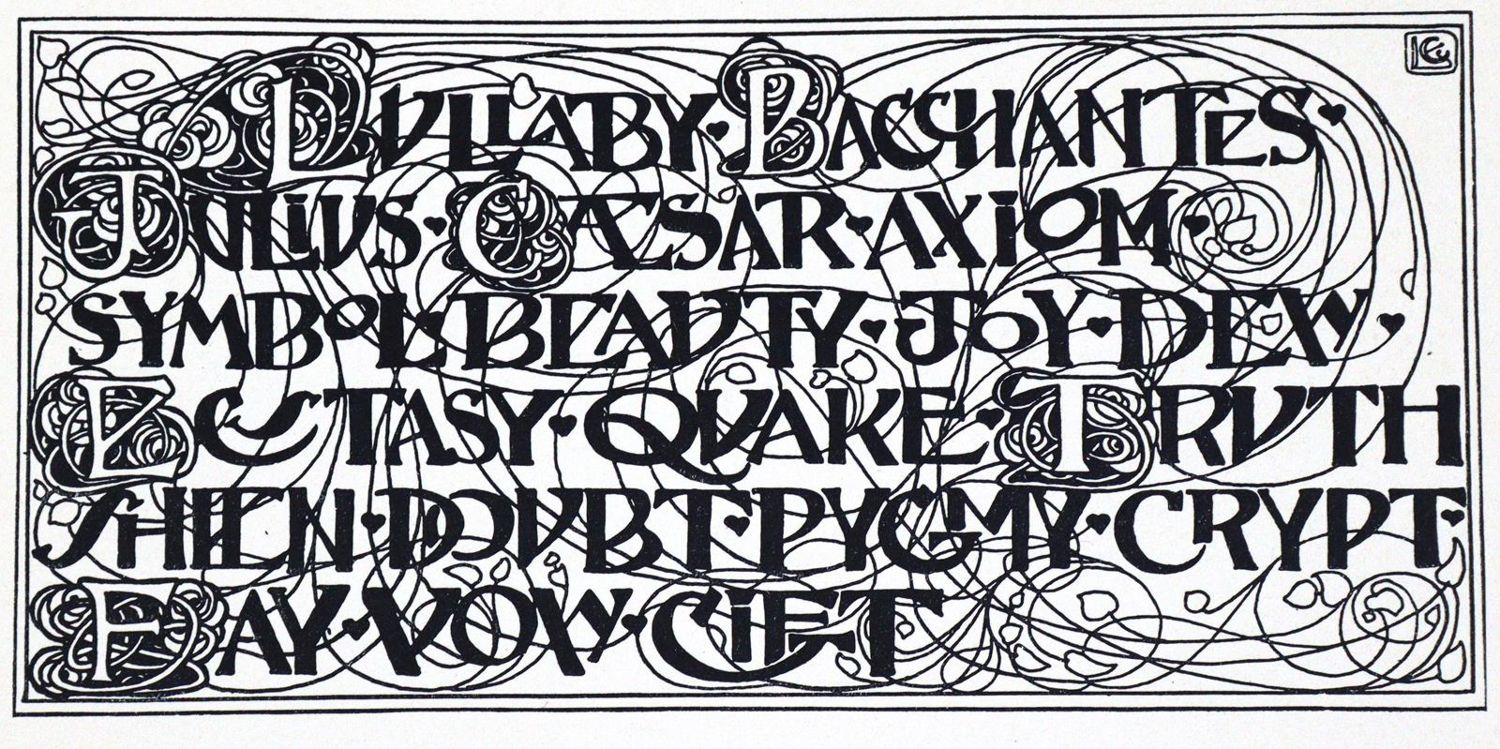 LVLLABY · BACCHANTES ·
JULIVS · CÆSAR · AXIOM ·
SYMBOL BEAVTY · JOY · DEW ·
ECSTASY · QVAKE · TRVTH
DOVBT · PYGMY · CRYPT ·
FAY · VOW · GIFT